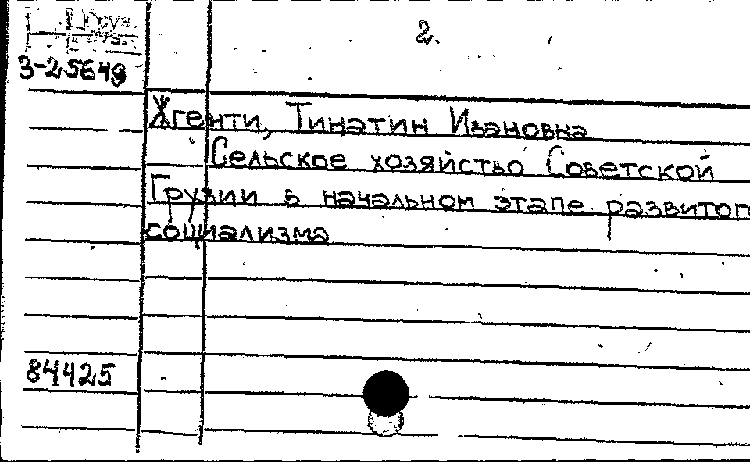 2.
3-25649
Жгенти, Тинатин Ивановна
Сельское хозяйство Советской
Грузии в начальном этапе развитого
социализма
84425